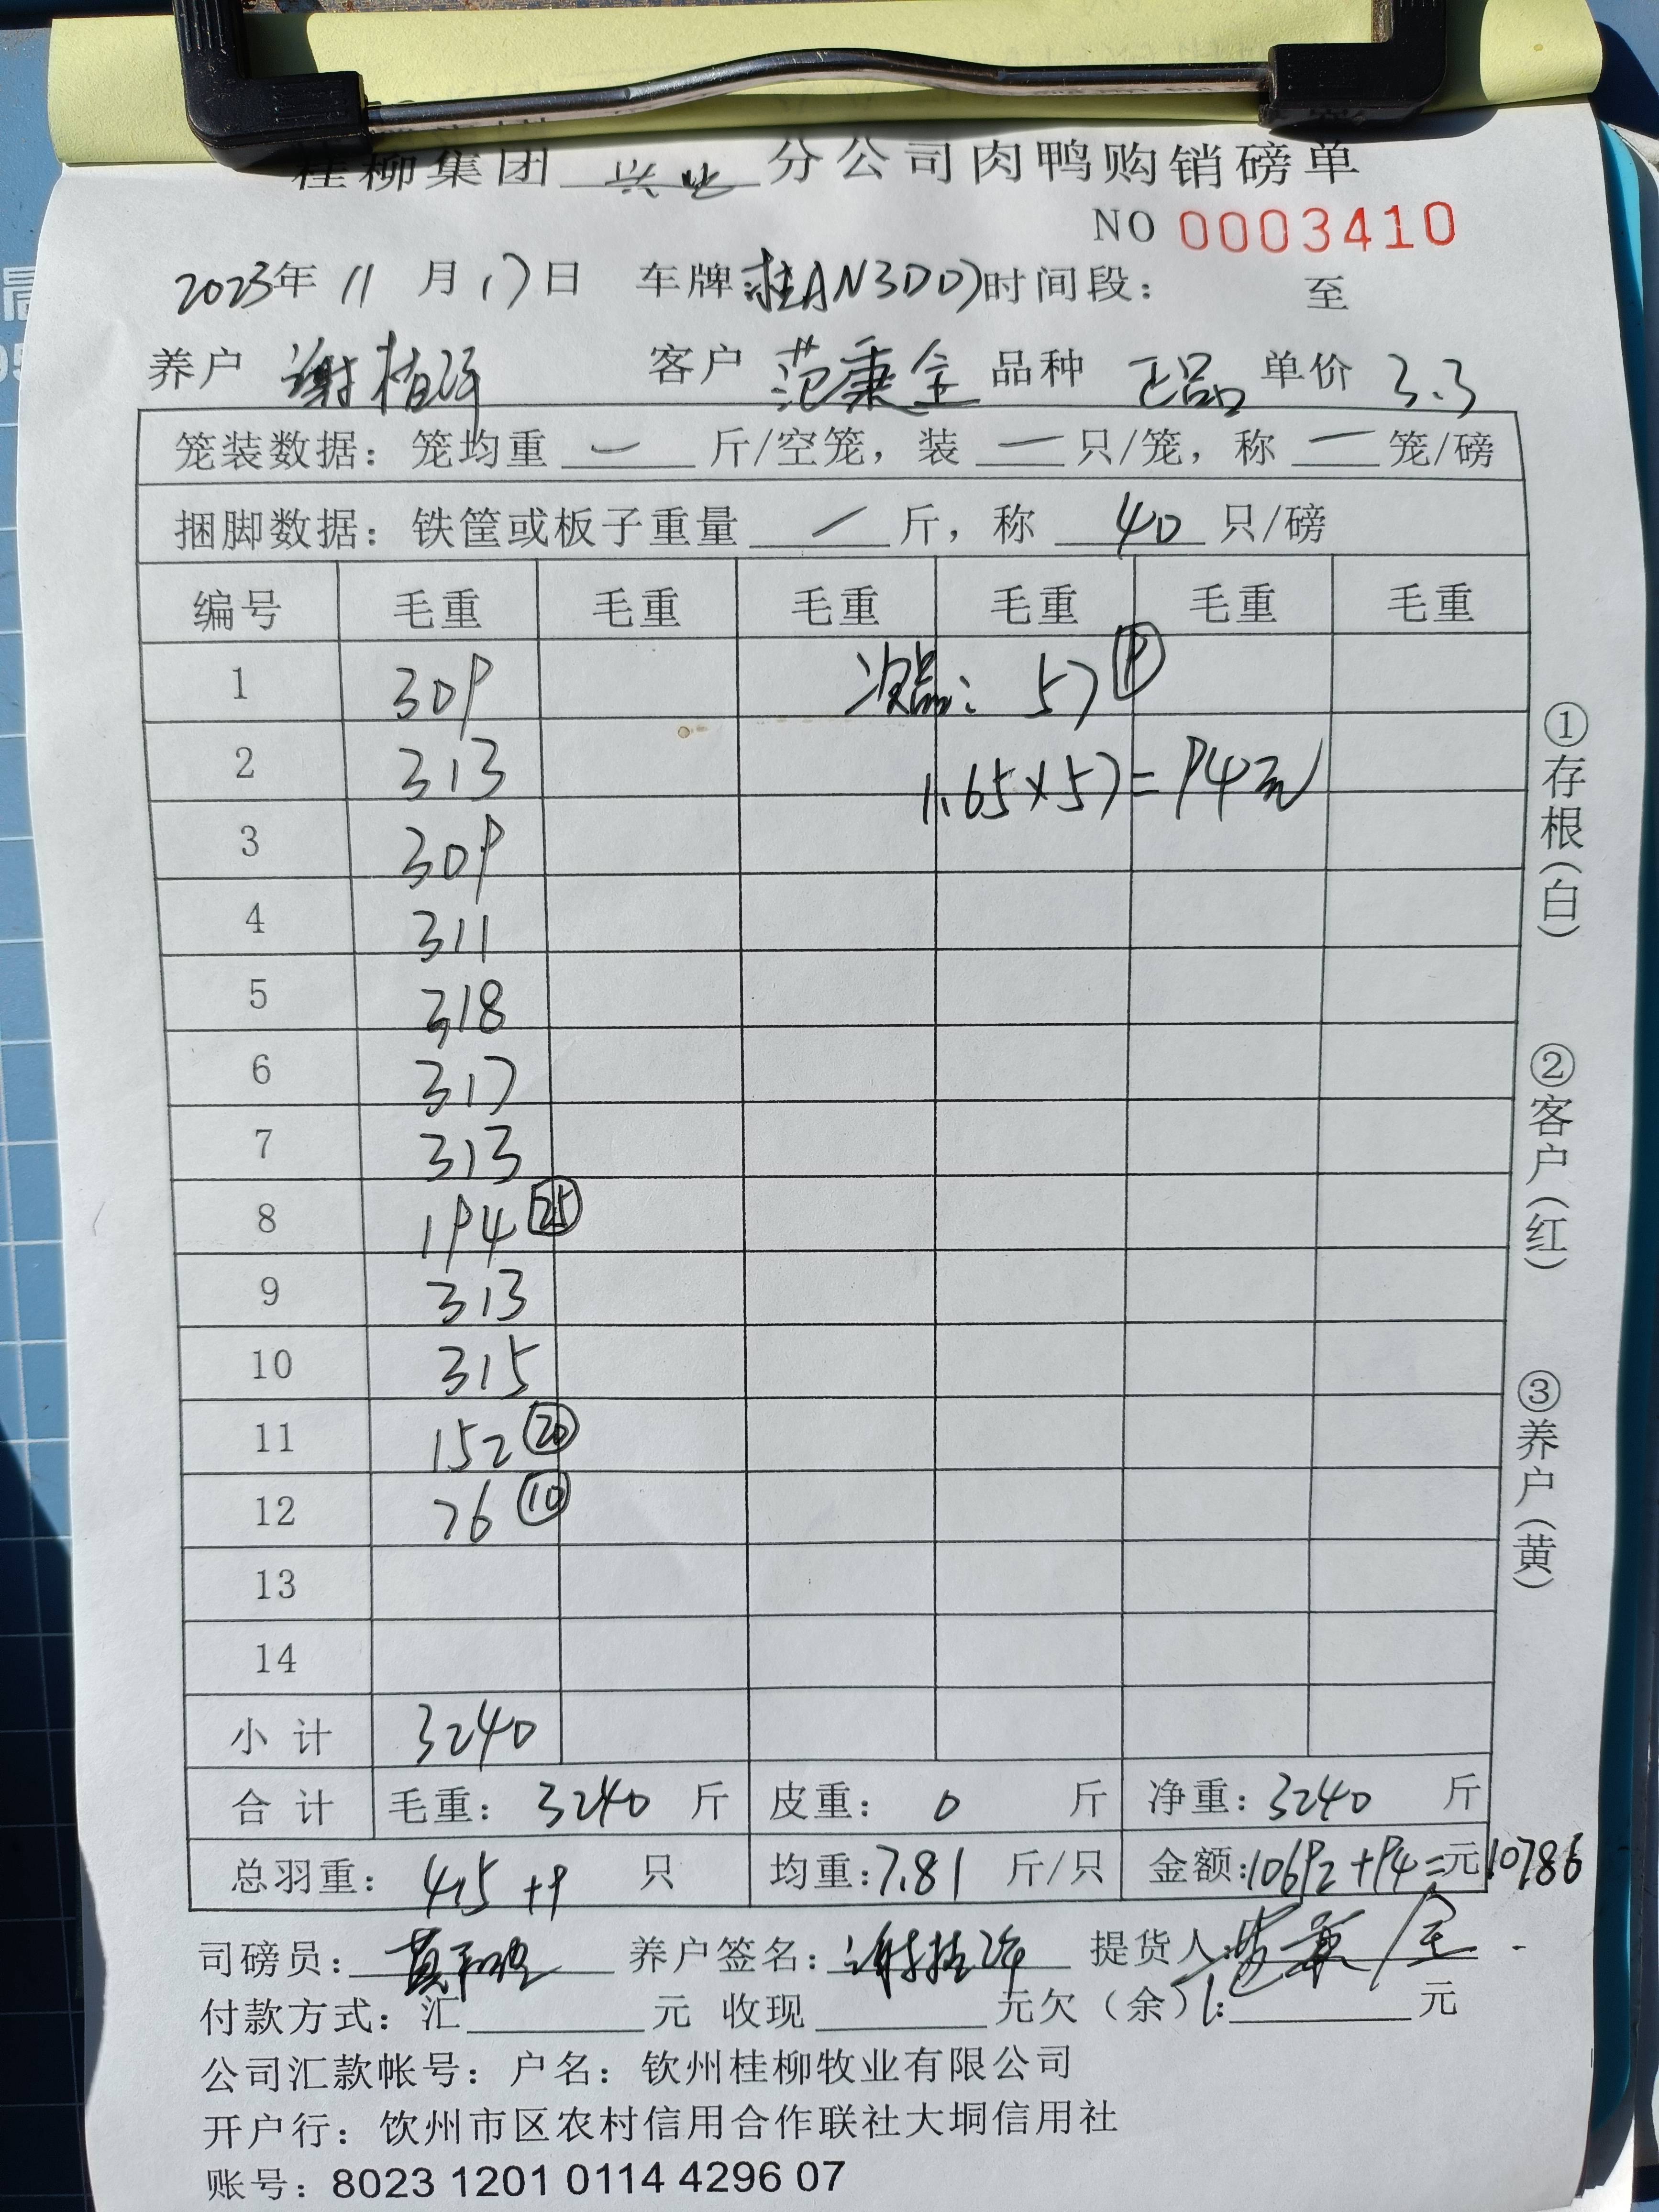 桂柳集团 兴业 分公司肉鸭购销磅单
NO 0003410
2023年 11 月 17 日 车牌 桂AN30D7 时间段： 至
养户 谢植 客户 范秉全 品种 正品 单价 3.3
笼装数据：笼均重 — 斤/空笼，装 — 只/笼，称 — 笼/磅
捆脚数据：铁筐或板子重量 / 斤，称 40 只/磅
编号 毛重 毛重 毛重 毛重 毛重 毛重
1 309 次品：57 ⑨
2 313 1.65×57=94元
3 309
4 311
5 318
6 317
7 313
8 194 ㉕
9 313
10 315
11 152 ⑳
12 76 ⑩
13
14
小计 3240
合计 毛重：3240 斤 皮重：0 斤 净重：3240 斤
总羽重：415+9 只 均重：7.81 斤/只 金额：10692+94=元10786
司磅员： 养户签名：谢植 提货人：范秉全
付款方式：汇 元 收现 元欠（余）：元
公司汇款帐号：户名：钦州桂柳牧业有限公司
开户行：钦州市区农村信用合作联社大垌信用社
账号：8023 1201 0114 4296 07
①存根（白）
②客户（红）
③养户（黄）